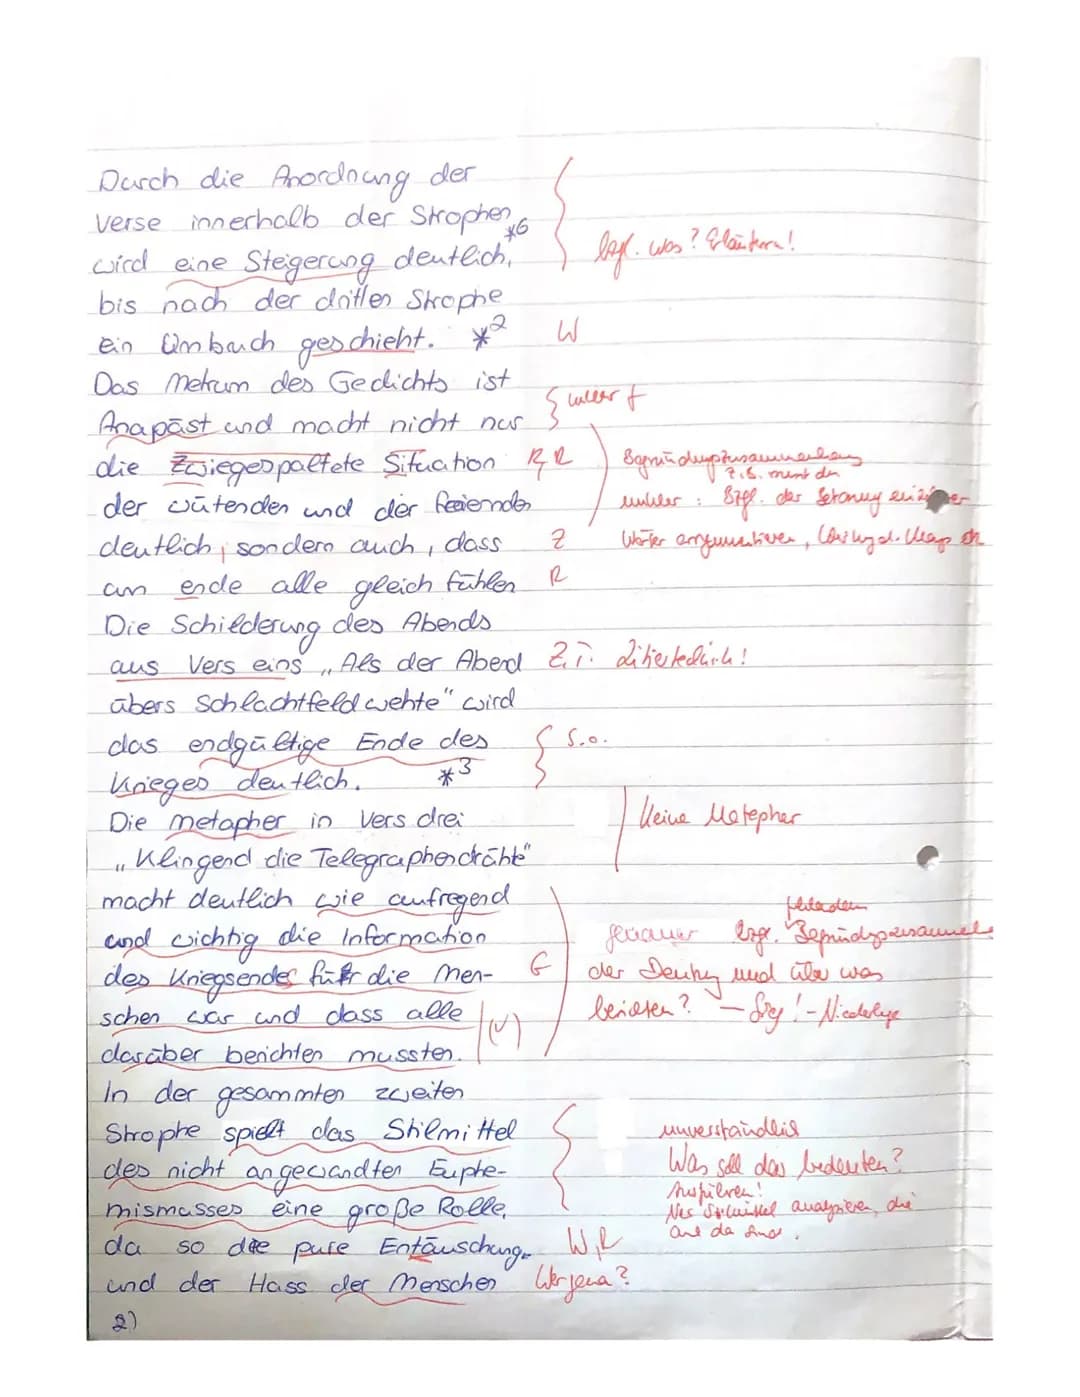 Durch die Anordnung der
Verse innerhalb der Strophen *6
wird eine Steigerung deutlich, bzgl. was? Erläutern!
bis nach der dritten Strophe
ein Umbruch geschieht. *2 W
Das Metrum des Gedichts ist
Anapäst und macht nicht nur unklar f
die Zwiegespaltete Situation R R Begründungszusammenhang
z.B. mit den
der wütenden und der feiernden unklar: bzgl. der Setzung
deutlich, sondern auch, dass Z Wörter
am ende alle gleich fühlen R
Die Schilderung des Abends
aus Vers eins „Als der Abend Z.T. Zitiertechnik!
übers Schlachtfeld wehte" wird
das endgültige Ende des s.o.
Krieges deutlich. *3
Die metapher in Vers drei keine Metapher
„Klingend die Telegraphendrähte"
macht deutlich wie aufregend
und wichtig die Information genauer bzgl. Begründungszusammenh
des Kriegsendes für die Men- G der Deutung und über was
schen war und dass alle (V) berichten? – Sieg! - Niederlage
darüber berichten mussten.
In der gesammten zweiten
Strophe spielt das Stilmittel unverständlich
des nicht angewandten Euphe- Was soll das bedeuten?
mismusses eine große Rolle, Nur Stilmittel analysieren, die
da so die pure Entäuschung W, R auch da sind.
und der Hass der Menschen Wer genau?
2)